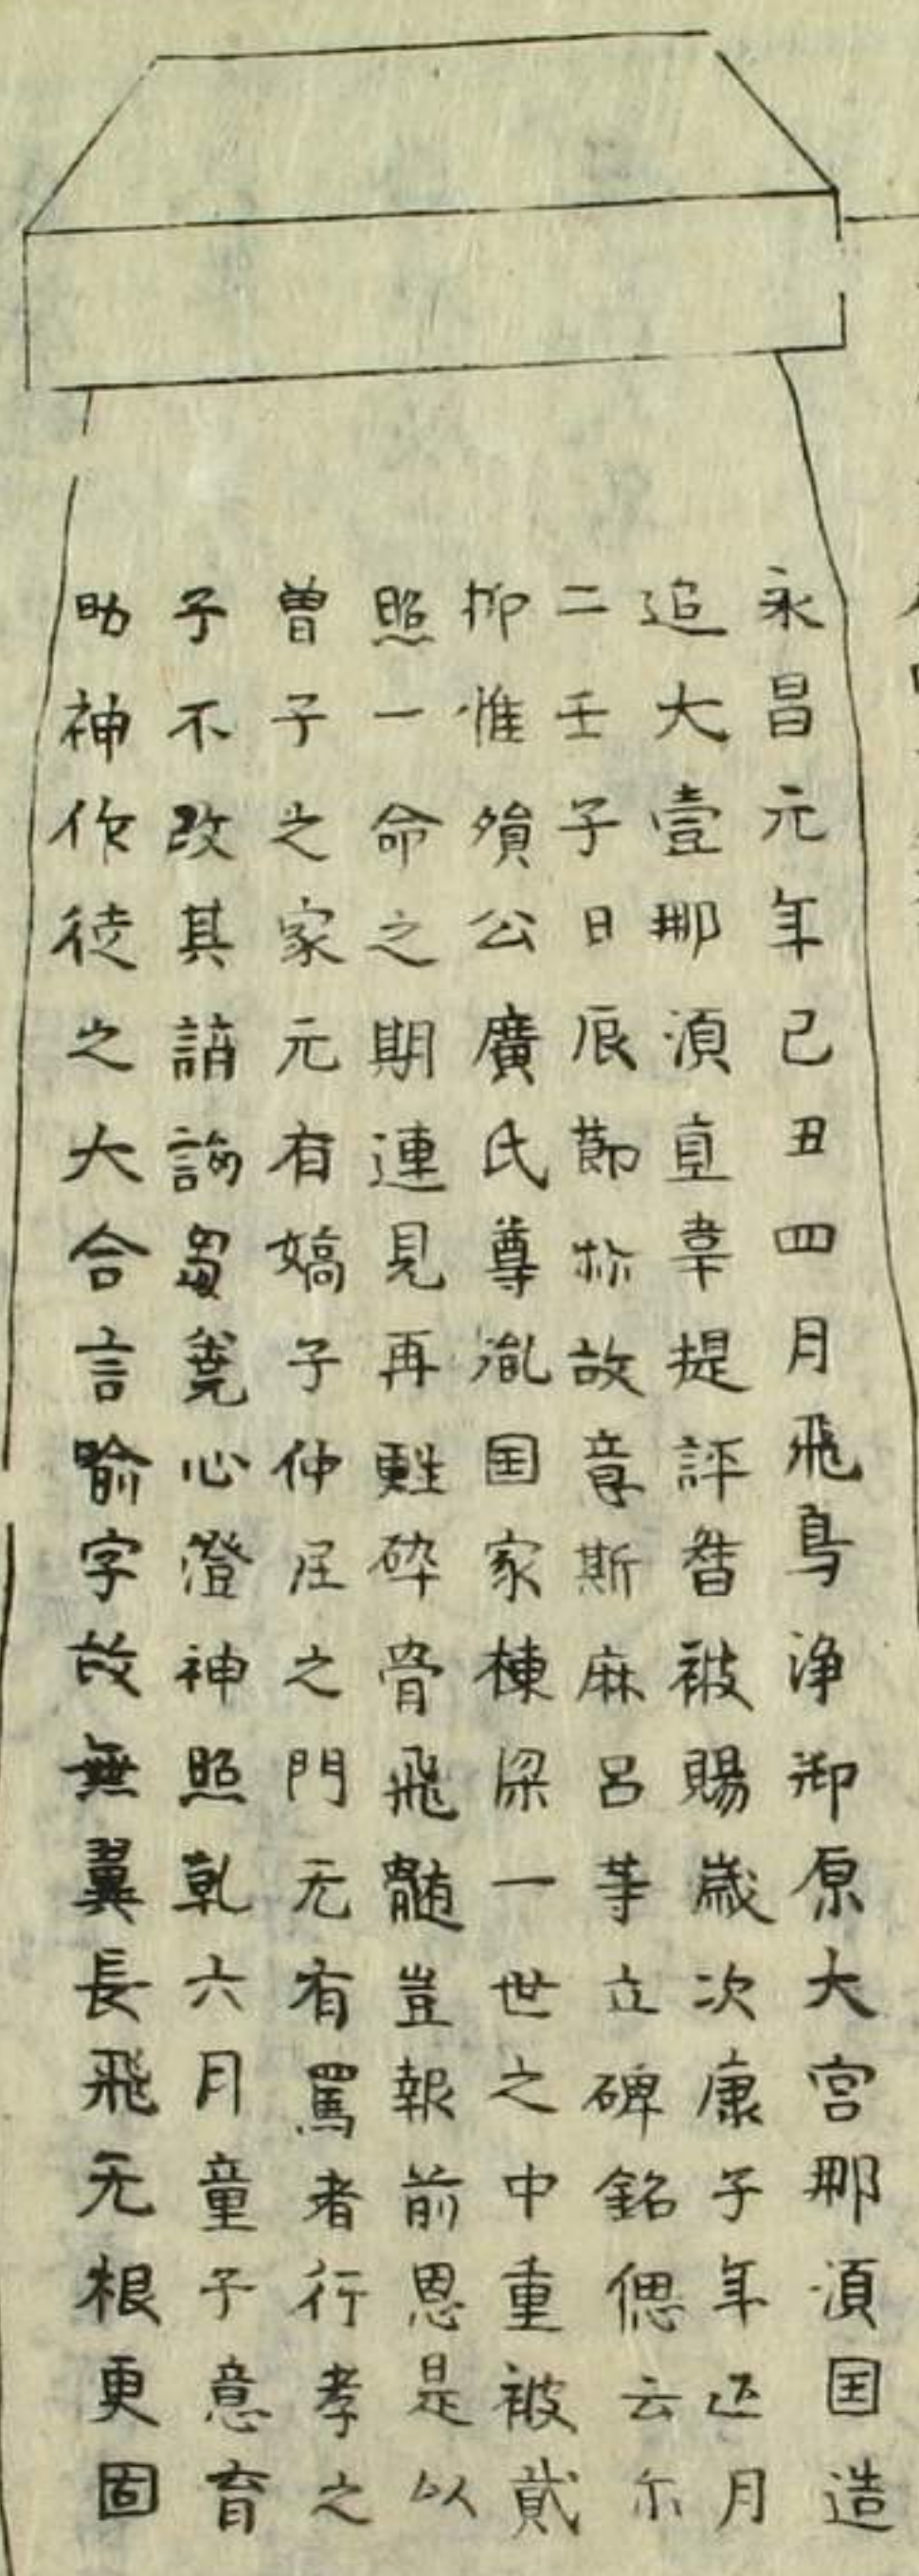 永昌元年己丑四月飛鳥浄御原大宮那湏国造
追大壹那湏直韋提評督被賜歳次康子年正月
二壬子日辰節㱕故意斯麻呂等立碑銘偲云尓
抑惟殞公廣氏尊胤国家棟梁一世之中重被貮
照一命之期連見再甦砕骨飛髄豈報前恩是以
曽子之家元有嬌子仲尼之門无有罵者行孝之
子不改其語誨芻尭心澄神照乹六月童子意育
助神作徒之大合言喩字故無翼長飛无根更固